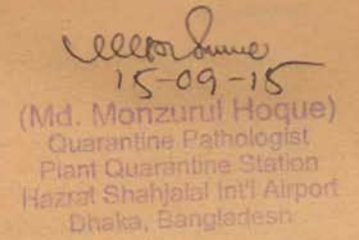 15-09-15
(Md. Monzurul Hoque)
Quarantine Pathologist
Plant Quarantine Station
Hazrat Shahjalal Int'l Airport
Dhaka, Bangladesh.